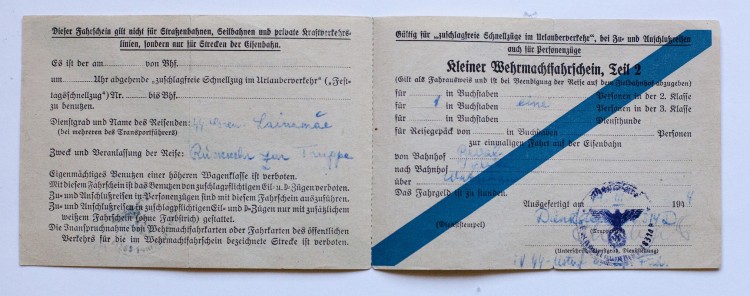 Dieser Fahrschein gilt nicht für Straßenbahnen, Seilbahnen und private Kraftverkehrs-
linien, sondern nur für Strecken der Eisenbahn.
Es ist der am von Bhf.
um Uhr abgehende „zuschlagfreie Schnellzug im Urlauberverkehr" („Fest-
tagsschnellzug") Nr. bis Bhf.
zu benutzen.
Dienstgrad und Name des Reisenden:
(bei mehreren des Transportführers)
Zweck und Veranlassung der Reise: zur Truppe
Eigenmächtiges Benutzen einer höheren Wagenklasse ist verboten.
Mit diesem Fahrschein ist das Benutzen von zuschlagpflichtigen Eil- u. D-Zügen verboten.
Zu- und Anschlußreisen in Personenzügen sind mit diesem Fahrschein auszuführen.
Zu- und Anschlußreisen in zuschlagpflichtigen Eil- und D-Zügen nur mit zusätzlichem
weißen Fahrschein (ohne Farbstrich) gestattet.
Die Inanspruchnahme von Wehrmachtfahrkarten oder Fahrkarten des öffentlichen
Verkehrs für die im Wehrmachtfahrschein bezeichnete Strecke ist verboten.
Gültig für „zuschlagfreie Schnellzüge im Urlauberverkehr", bei Zu- und Anschlußreisen
auch für Personenzüge
Kleiner Wehrmachtfahrschein, Teil 2
(Gilt als Fahrausweis und ist bei Beendigung der Reise auf dem Zielbahnhof abzugeben)
für in Buchstaben Personen in der 2. Klasse
für 1 in Buchstaben eine Personen in der 3. Klasse
für in Buchstaben Diensthunde
für Reisegepäck von in Buchstaben Personen
zur einmaligen Fahrt auf der Eisenbahn
von Bahnhof
nach Bahnhof
über
Das Fahrgeld ist zu stunden.
Ausgefertigt am 194
(Dienststempel)
(Unterschrift, Dienstgrad, Dienststellung)